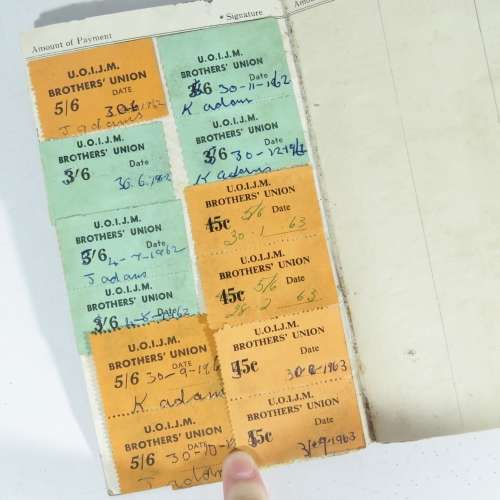 Amount of Payment
* Signature
Amoun
U.O.I.J.M.
BROTHERS' UNION
5/6 DATE
30.6.1962
J adams
U.O.I.J.M.
BROTHERS' UNION
3/6 Date
30.6.1962
U.O.I.J.M.
BROTHERS' UNION
3/6 Date
4-7-1962
J adams
U.O.I.J.M.
BROTHERS' UNION
3/6 Date
4-8-1962
U.O.I.J.M.
BROTHERS' UNION
5/6 DATE
30-9-196
K adam
U.O.I.J.M.
BROTHERS' UNION
5/6 DATE
30-10-
J adams
U.O.I.J.M.
BROTHERS' UNION
3/6 Date
30-11-1962
K adam
U.O.I.J.M.
BROTHERS' UNION
3/6 Date
30-12-1962
K adams
U.O.I.J.M.
BROTHERS' UNION
45c 5/6 Date
30.1.63
U.O.I.J.M.
BROTHERS' UNION
45c 5/6 Date
28 2 63
U.O.I.J.M.
BROTHERS' UNION
45c Date
1963
U.O.I.J.M.
BROTHERS' UNION
45c Date
9-1963